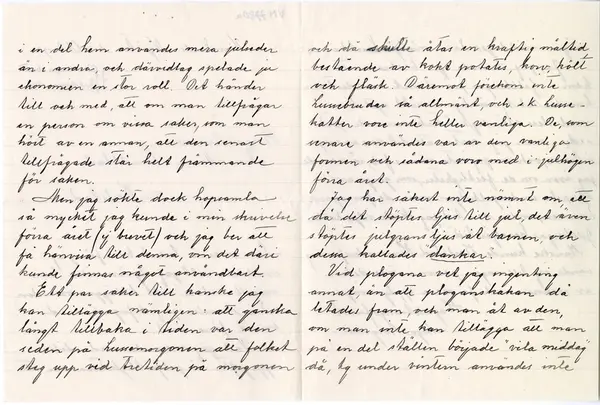 i en del hem användes mera julseder
än i andra, och därvidlag spelade ju
ekonomien en stor roll. Det händer
till och med, att om man tillfrågar
en person om vissa saker, som man
hört av en annan, att den senast
tillfrågade står helt främmande
för saken.
Men jag sökte dock hopsamla
så mycket jag kunde i min skrivelse
förra året (ej brevet) och jag ber att
få hänvisa till denna, om det däri
kunde finnas något användbart.
Ett par saker till kanske jag
kan tillägga nämligen: att ganska
långt tillbaka i tiden var den
seden på lussemorgonen att folket
steg upp vid tretiden på morgonen
och då skulle ätas en kraftig måltid
bestående av kokt potatis, korv, kött
och fläsk. Däremot förekom inte
lussebrudar så allmänt, och s.k. lusse-
katter vore inte heller vanliga. De, som
senare användes var av den vanliga
formen och sådana voro med i julhögen
förra året.
Jag har säkert inte nämnt om att
då det stöptes ljus till jul, det även
stöptes julgransljus åt barnen, och
dessa kallades dankar.
Vid plogana vet jag ingenting
annat, än attploganskakan då
letades fram, och man åt av den,
om man inte kan tillägga att man
på en del ställen började "vila middag"
då, ty under vintern användes inte